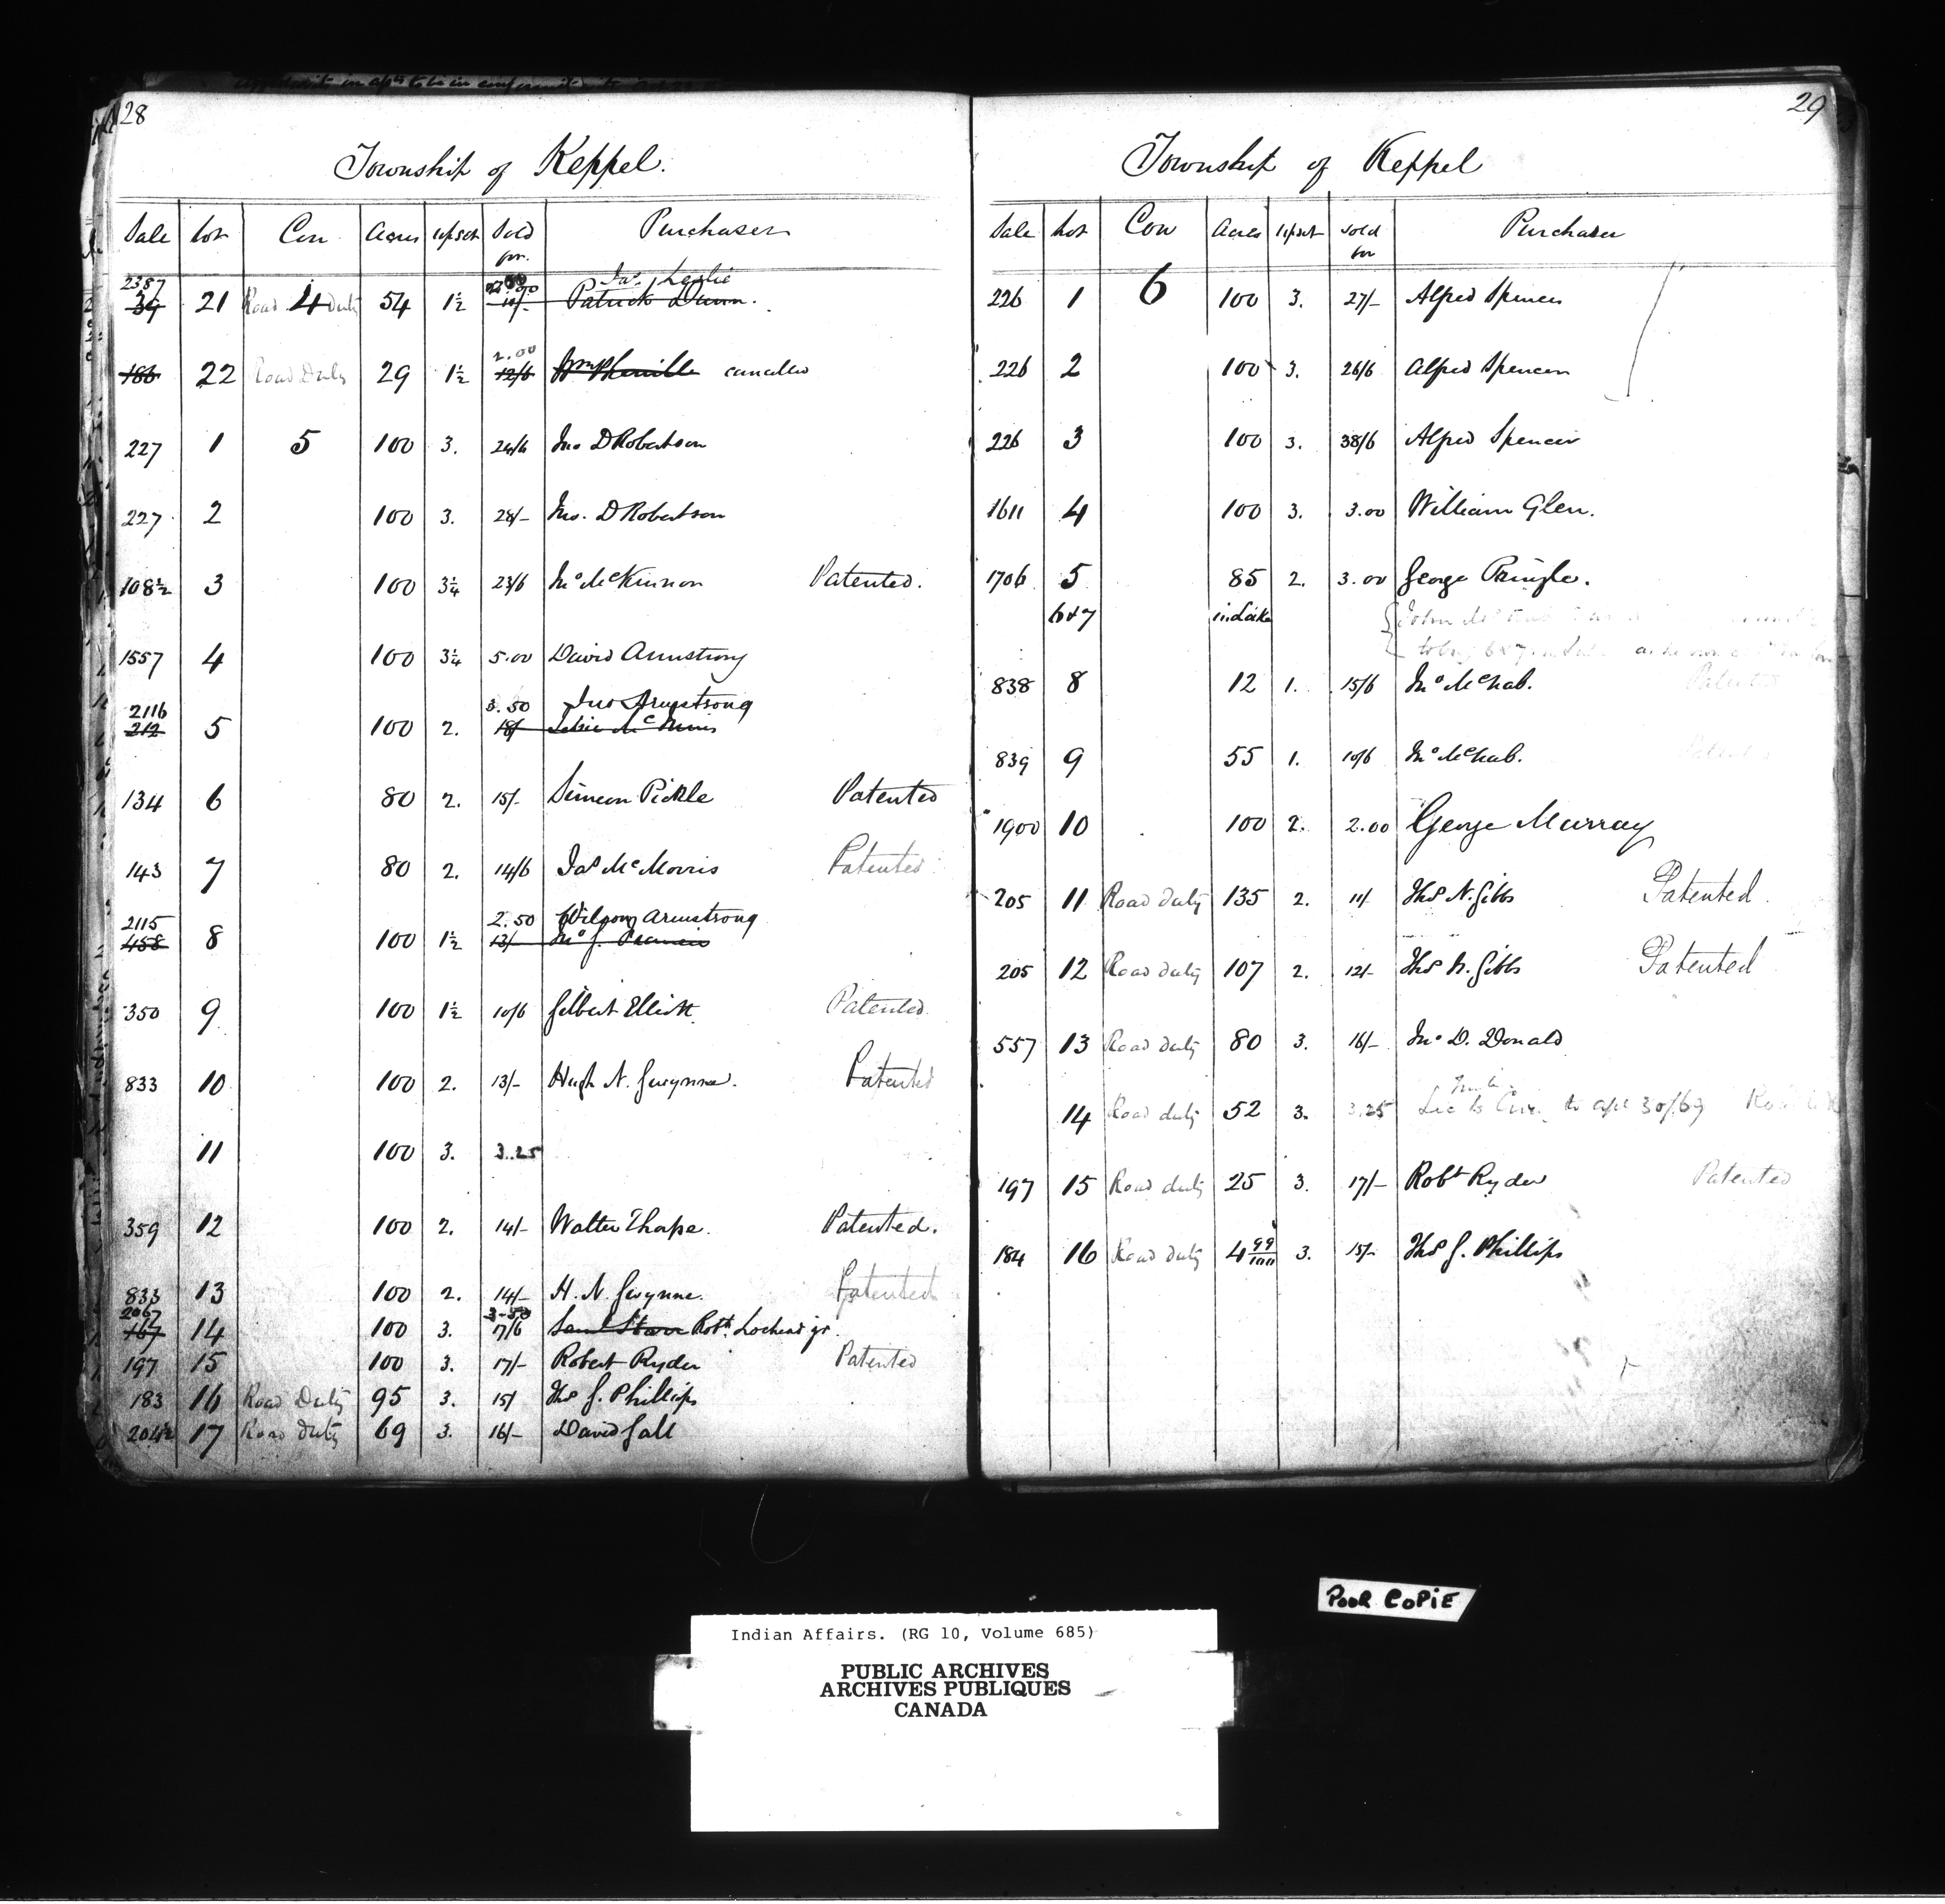 28
Township of Keppel.
Sale Lot Con Acres upset Sold for. Purchaser
2387 Jas. Leslie
39 21 Road 4 Duty 54 1½ Patrick Dunn.
2.00
186 22 Road Duty 29 1½ 12/6 cancelled
227 1 5 100 3. 24/6 Jno D Robertson
227 2 100 3. 28/- Jno. D Robertson
108½ 3 100 3¼ 23/6 Jno McKinnon Patented.
1557 4 100 3¼ 5.00 David Armstrong
2116 3.50 Jno Armstrong
212 5 100 2. 18/
134 6 80 2. 15/- Simeon Pickle Patented
143 7 80 2. 14/6 Jas McMorris Patented
2115 2.50 Wilson Armstrong
458 8 100 1½ 13/- Jno J.
350 9 100 1½ 10/6 Gilbert Elliott Patented
833 10 100 2. 13/- Hugh N. Gwynne. Patented
11 100 3. 3.25
359 12 100 2. 14/- Walter Thorpe. Patented.
833 13 100 2. 14/- H. N. Gwynne. Patented
2067 3-50
167 14 100 3. 17/6 Saml Starr Robt. Lochead jr.
197 15 100 3. 17/- Robert Ryder Patented
183 16 Road Duty 95 3. 15/ Thos J. Phillips
204½ 17 Road Duty 69 3. 16/- David Gall
29
Township of Keppel
Sale Lot Con Acres upset sold for Purchaser
226 1 6 100 3. 27/- Alfred Spencer
226 2 100 3. 26/6 Alfred Spencer
226 3 100 3. 38/6 Alfred Spencer
1611 4 100 3. 3.00 William Glen.
1706 5 85 2. 3.00 George Pringle.
6&7 in Lake John
838 8 12 1. 15/6 Jno McNab. Patented
839 9 55 1. 10/6 Jno McNab. Patented
1900 10 100 2. 2.00 George Murray
205 11 Road duty 135 2. 11/ Thos N. Gibbs Patented.
205 12 Road duty 107 2. 12/- Thos N. Gibbs Patented
557 13 Road duty 80 3. 16/- Jno D. Donald
14 Road duty 52 3. 3.25 Lic to to apl 30/69
197 15 Road duty 25 3. 17/- Robt Ryder Patented
184 16 Road duty 4 99/100 3. 15/- Thos J. Phillips
POOR COPIE
Indian Affairs. (RG 10, Volume 685)
PUBLIC ARCHIVES
ARCHIVES PUBLIQUES
CANADA